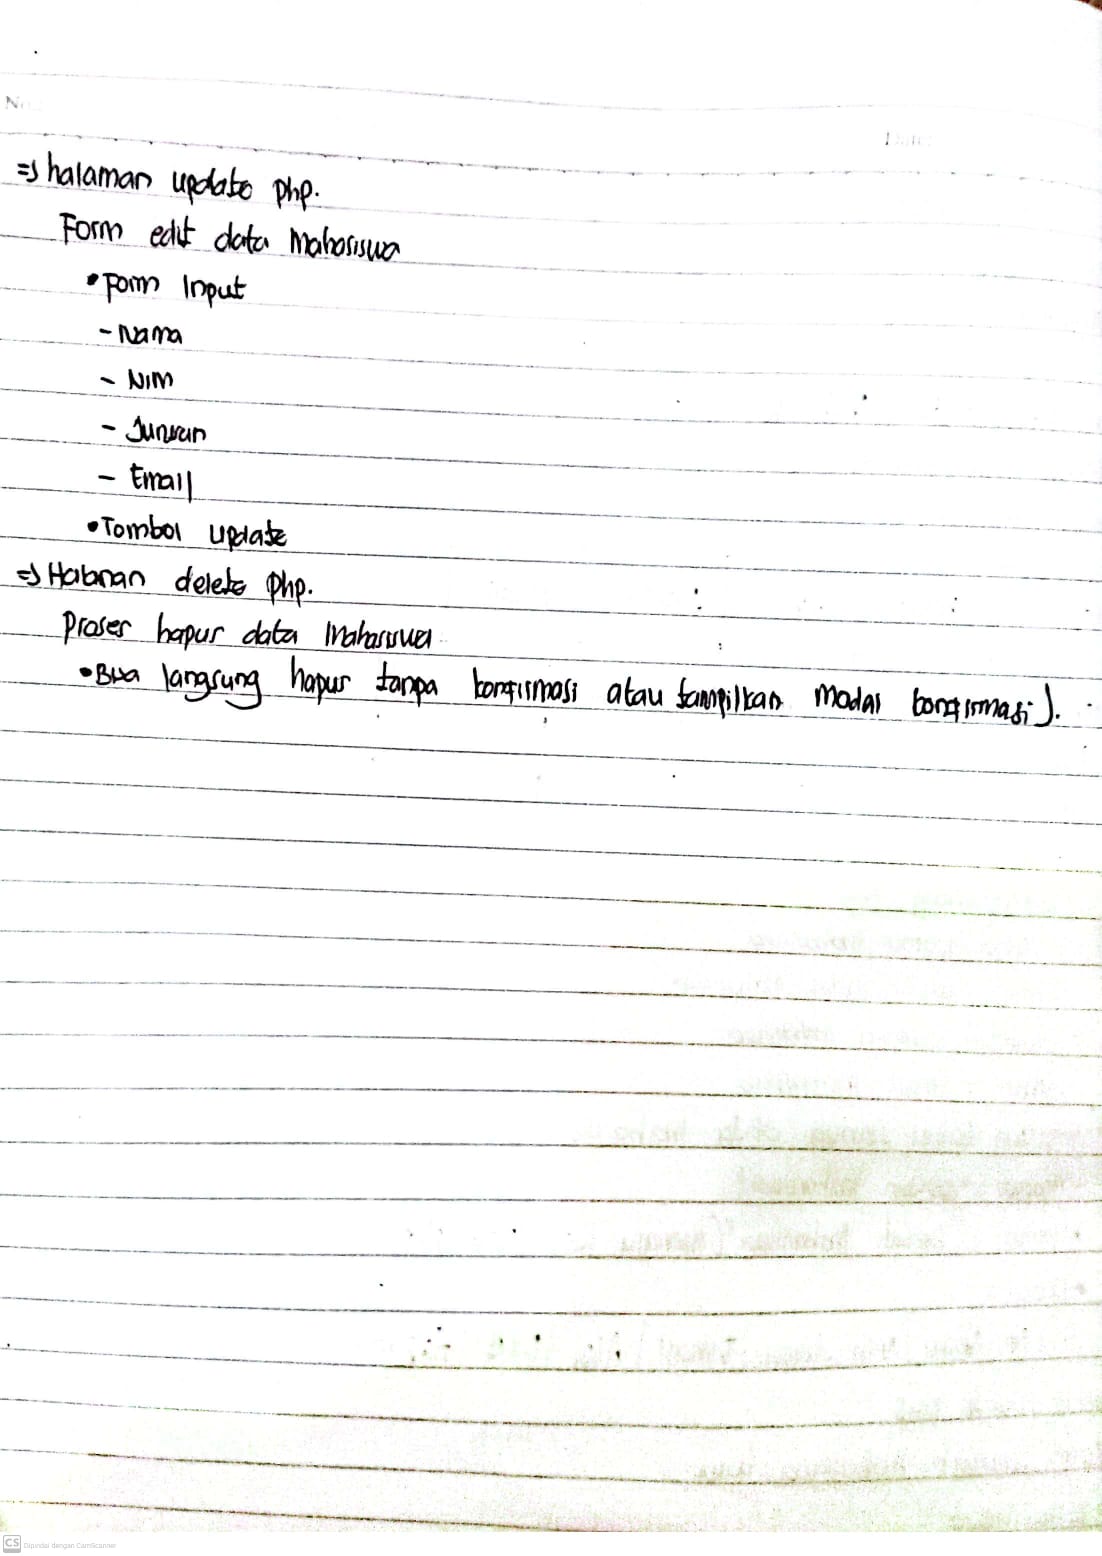 No.
Date:
⇒ halaman update php.
Form edit data Mahasiswa
• Form Input
- Nama
- NIM
- Jurusan
- Email
• Tombol update
⇒ Halaman delete php.
Proses hapus data Mahasiswa
• Bisa langsung hapus tanpa konfirmasi atau tampilkan modal konfirmasi).
CS Dipindai dengan CamScanner